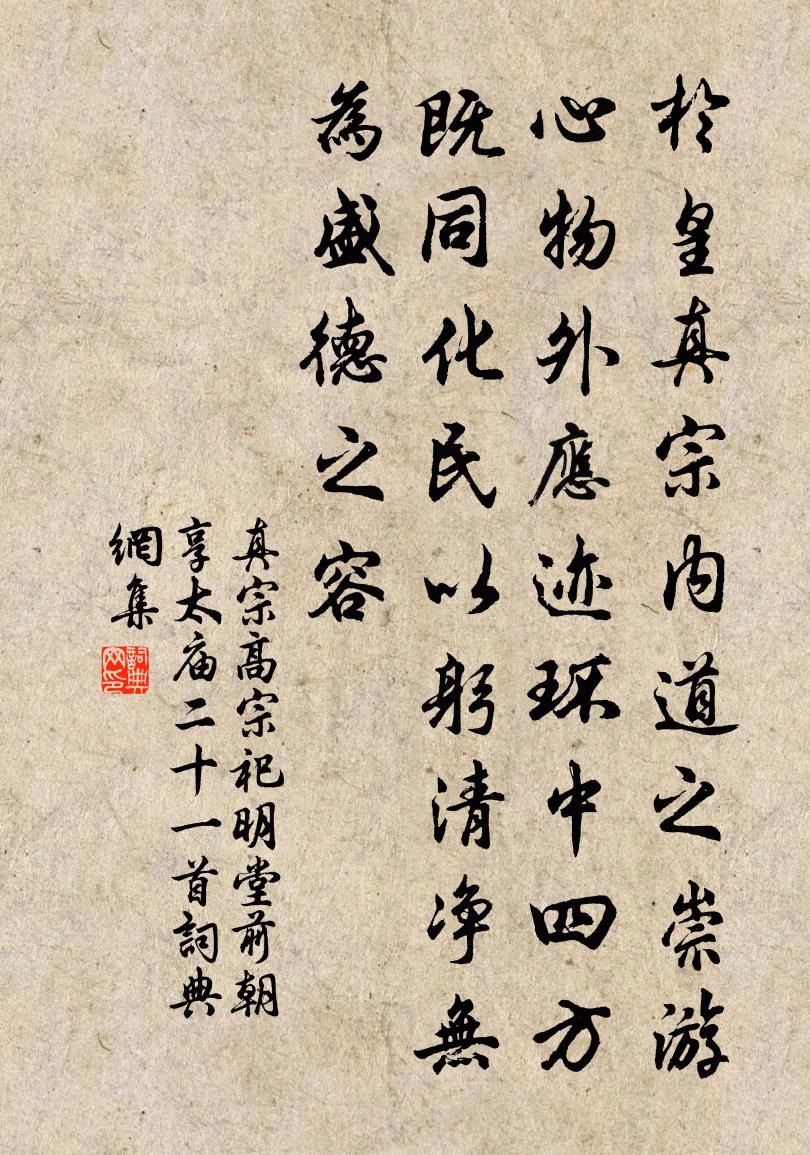 於皇真宗内道之崇游
心物外應迹环中四方
既同化民以躬清净無
為盛德之容
真宗高宗祀明堂前朝
享太庙二十一首詞典
網集
詞典
网印